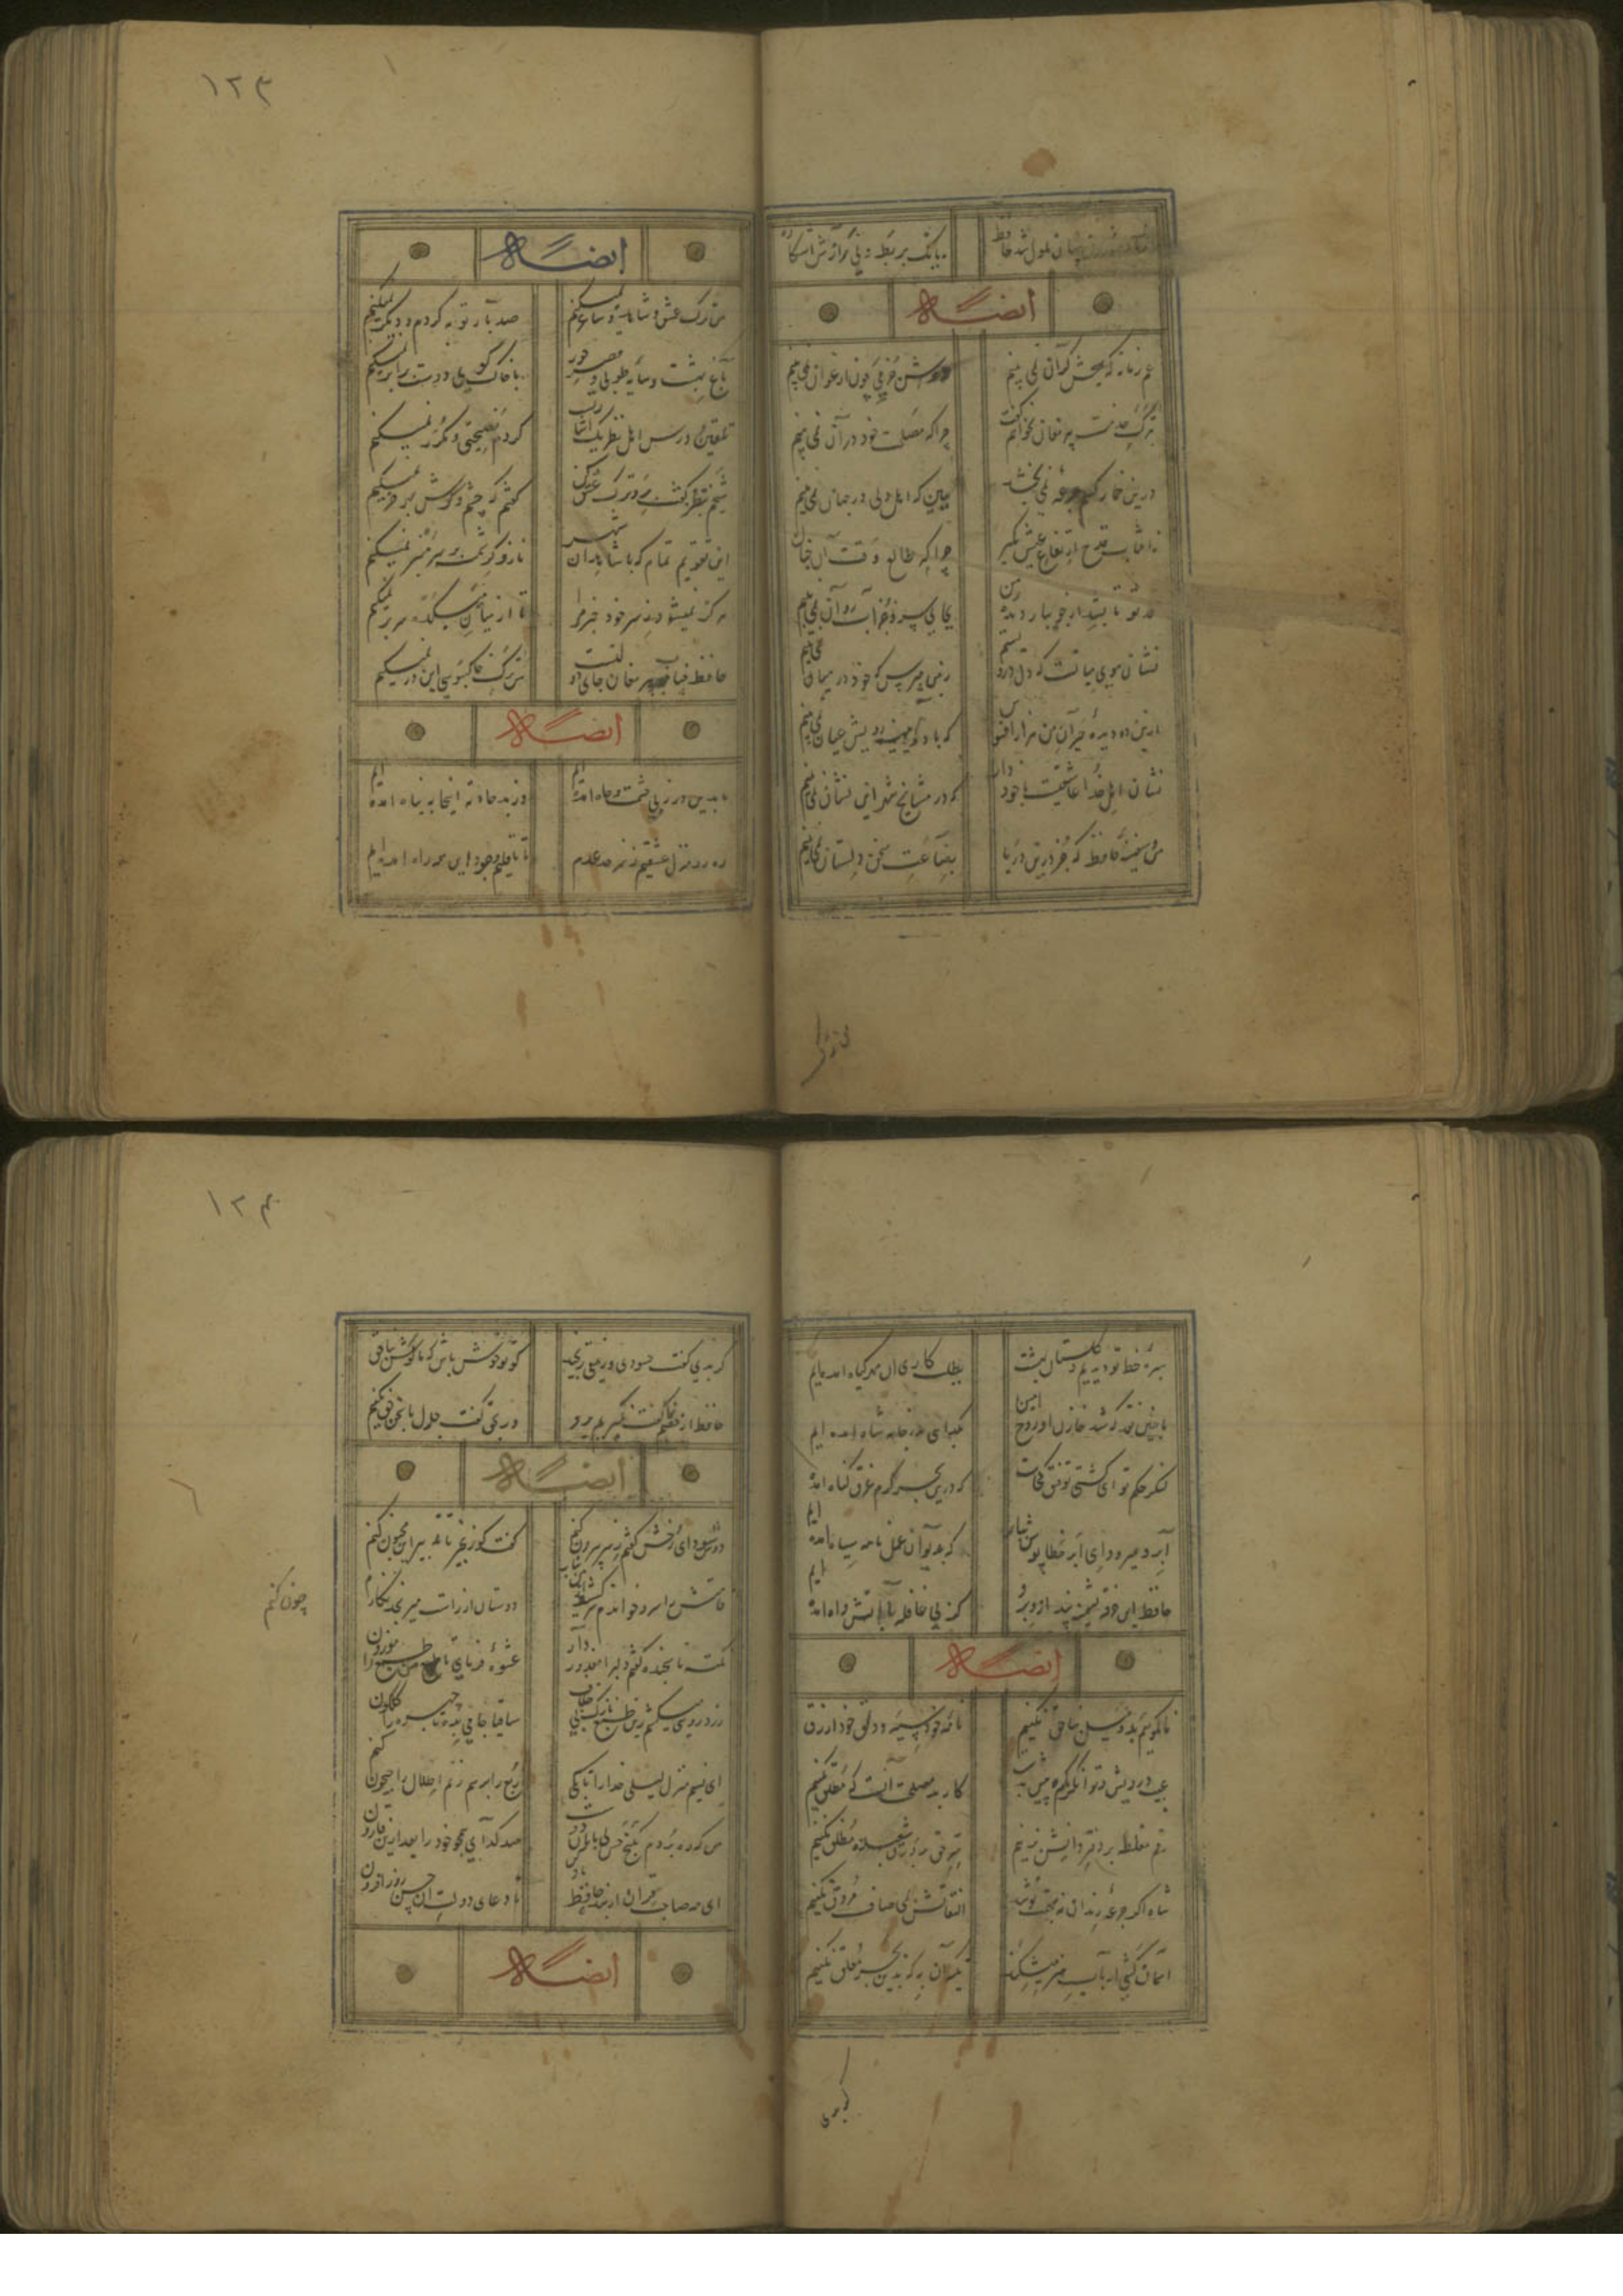 ۱۲۳
حافظ
ببانک بربط و نی رازش آشکاره
ایضاً له
غم زمانه که هیچش کران نمی بینم
دواش جز می چون ارغوان نمی بینم
بترک خدمت پیر مغان نخواهم گفت
چرا که مصلحت خود در آن نمی بینم
درین خمار کسم جرعه نمی بخشد
ببین که اهل دلی در جهان نمی بینم
ز آفتاب قدح ارتفاع عیش بگیر
چرا که طالع وقت آن چنان
قد تو تا بشد از جویبار دیده من
بجای سرو جز آب روان نمی بینم
نشان موی میانت که دل درو بستم
ز من مپرس که خود در میان نمی بینم
بدین دو دیده حیران من هزار افسوس
که با دو آیینه رویش عیان نمی بینم
نشان اهل خدا عاشقیست با خود دار
که در مشایخ شهر این نشان نمی بینم
من و سفینه حافظ که جز درین دریا
بضاعت سخن دلستان نمی بینم
من ترک
ایضاً له
من ترک عشق و شاهد و ساغر نمیکنم
صد بار توبه کردم و دیگر نمیکنم
باغ بهشت و سایه طوبی و قصر حور
با خاک کوی دوست برابر نمیکنم
تلقین درس اهل نظر یک اشارتست
کردم نصیحتی و مکرر نمیکنم
شیخم بطنز گفت برو ترک عشق کن
گفتم که چشم و گوش بهر خر نمیکنم
این تقویم تمام که با شاهدان شهر
ناز و کرشمه بر سر منبر نمیکنم
هرگز نمیشود ز سر خود خبر مرا
تا از میان میکده سر بر نمیکنم
حافظ جناب پیر مغان جای دولتست
من ترک خاکبوسی این در نمیکنم
ایضاً له
ما بدین در نه پی حشمت و جاه آمده ایم
وز بد حادثه اینجا به پناه آمده ایم
ره رو منزل عشقیم ز سرحد عدم
تا باقلیم وجود این همه راه آمده ایم
۱۲۴
سبزه خط تو دیدیم و ز گلستان بهشت
بطلب کاری آن مهر گیاه آمده ایم
با چنین گنج که شد خازن او روح امین
بگدایی بدر خانه شاه آمده ایم
لنگر حلم تو ای کشتی توفیق کجاست
که درین بحر کرم غرق گناه آمده ایم
آبرو میرود ای ابر خطا پوش ببار
که بدیوان عمل نامه سیاه آمده ایم
حافظ این خرقه پشمینه بینداز و برو
کز پی قافله با آتش و آه آمده
ایضاً له
ما نگوییم بد و میل بناحق نکنیم
جامه خود سیه و دلق خود ازرق
عیب درویش و توانگر بکم و بیش بدست
کار بد مصلحت آنست که مطلق نکنیم
رقم مغلطه بر دفتر دانش نزنیم
سر حق بر ورق شعبده ملحق نکنیم
شاه اگر جرعه رندان نه بحرمت نوشد
التفاتش بمی صاف مروق نکنیم
آسمان کشتی ارباب هنر میشکند
تکیه آن به که بدین بحر معلق نکنیم
گر بدی
گر بدی گفت حسودی و رفیقی رنجید
گو تو خوش باش که ما گوش باحمق نکنیم
حافظ ار خصم خطا گفت نگیریم برو
ور بحق گفت جدل با سخن حق نکنیم
ایضاً له
دوش سودای رخش گفتم ز سر بیرون کنم
گفت کو زنجیر تا تدبیر این مجنون کنم
دوستان از راست میرنجد نگارم
چون کنم
نکته ناسنجیده گفتم دلبرا معذور دار
عشوه فرمای تا من طبع را موزون
زرد رویی میکشم زین طبع نازک بی گناه
ساقیا جامی بده تا چهره را گلگون کنم
ای نسیم منزل لیلی خدا را تا بکی
ربع را برهم زنم اطلال را جیحون کنم
من که ره بردم بگنج حسن بی پایان دوست
صد گدای همچو خود را بعد ازین قارون
ای مه صاحب قران از بنده حافظ یاد
تا دعای دولت آن حسن روز افزون
ایضاً له